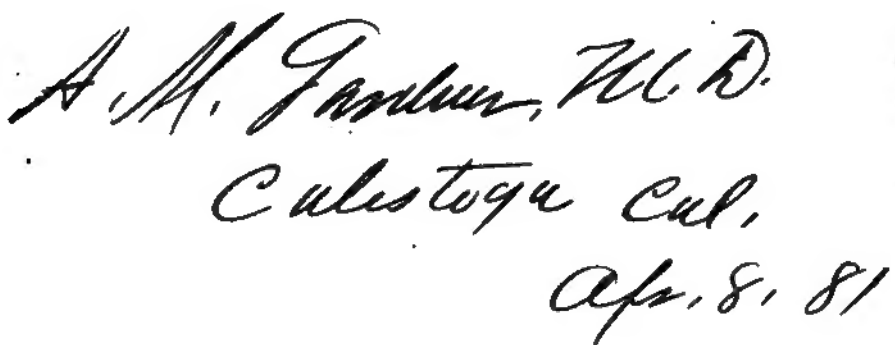 A. M. Gardner, M.D.
Calestoga Cal.
Apr. 8, 81